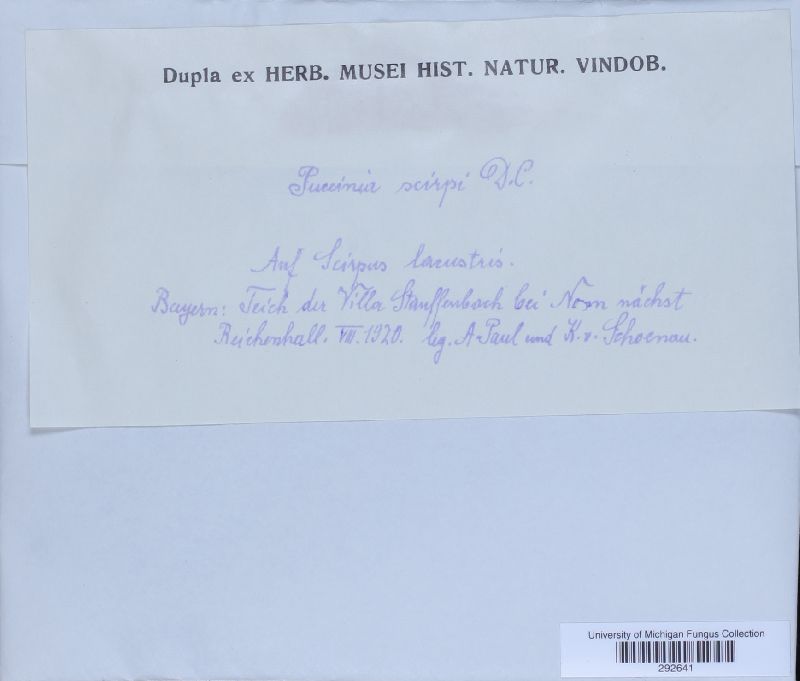 Dupla ex HERB. MUSEI HIST. NATUR. VINDOB.
Puccinia scirpi D.C.
Auf Scirpus lacustris.
Bayern: Teich der Villa Stauffenbach bei Nonn nächst
Reichenhall. VIII. 1920. leg. A. Paul und K. v. Schoenau.
University of Michigan Fungus Collection
292641